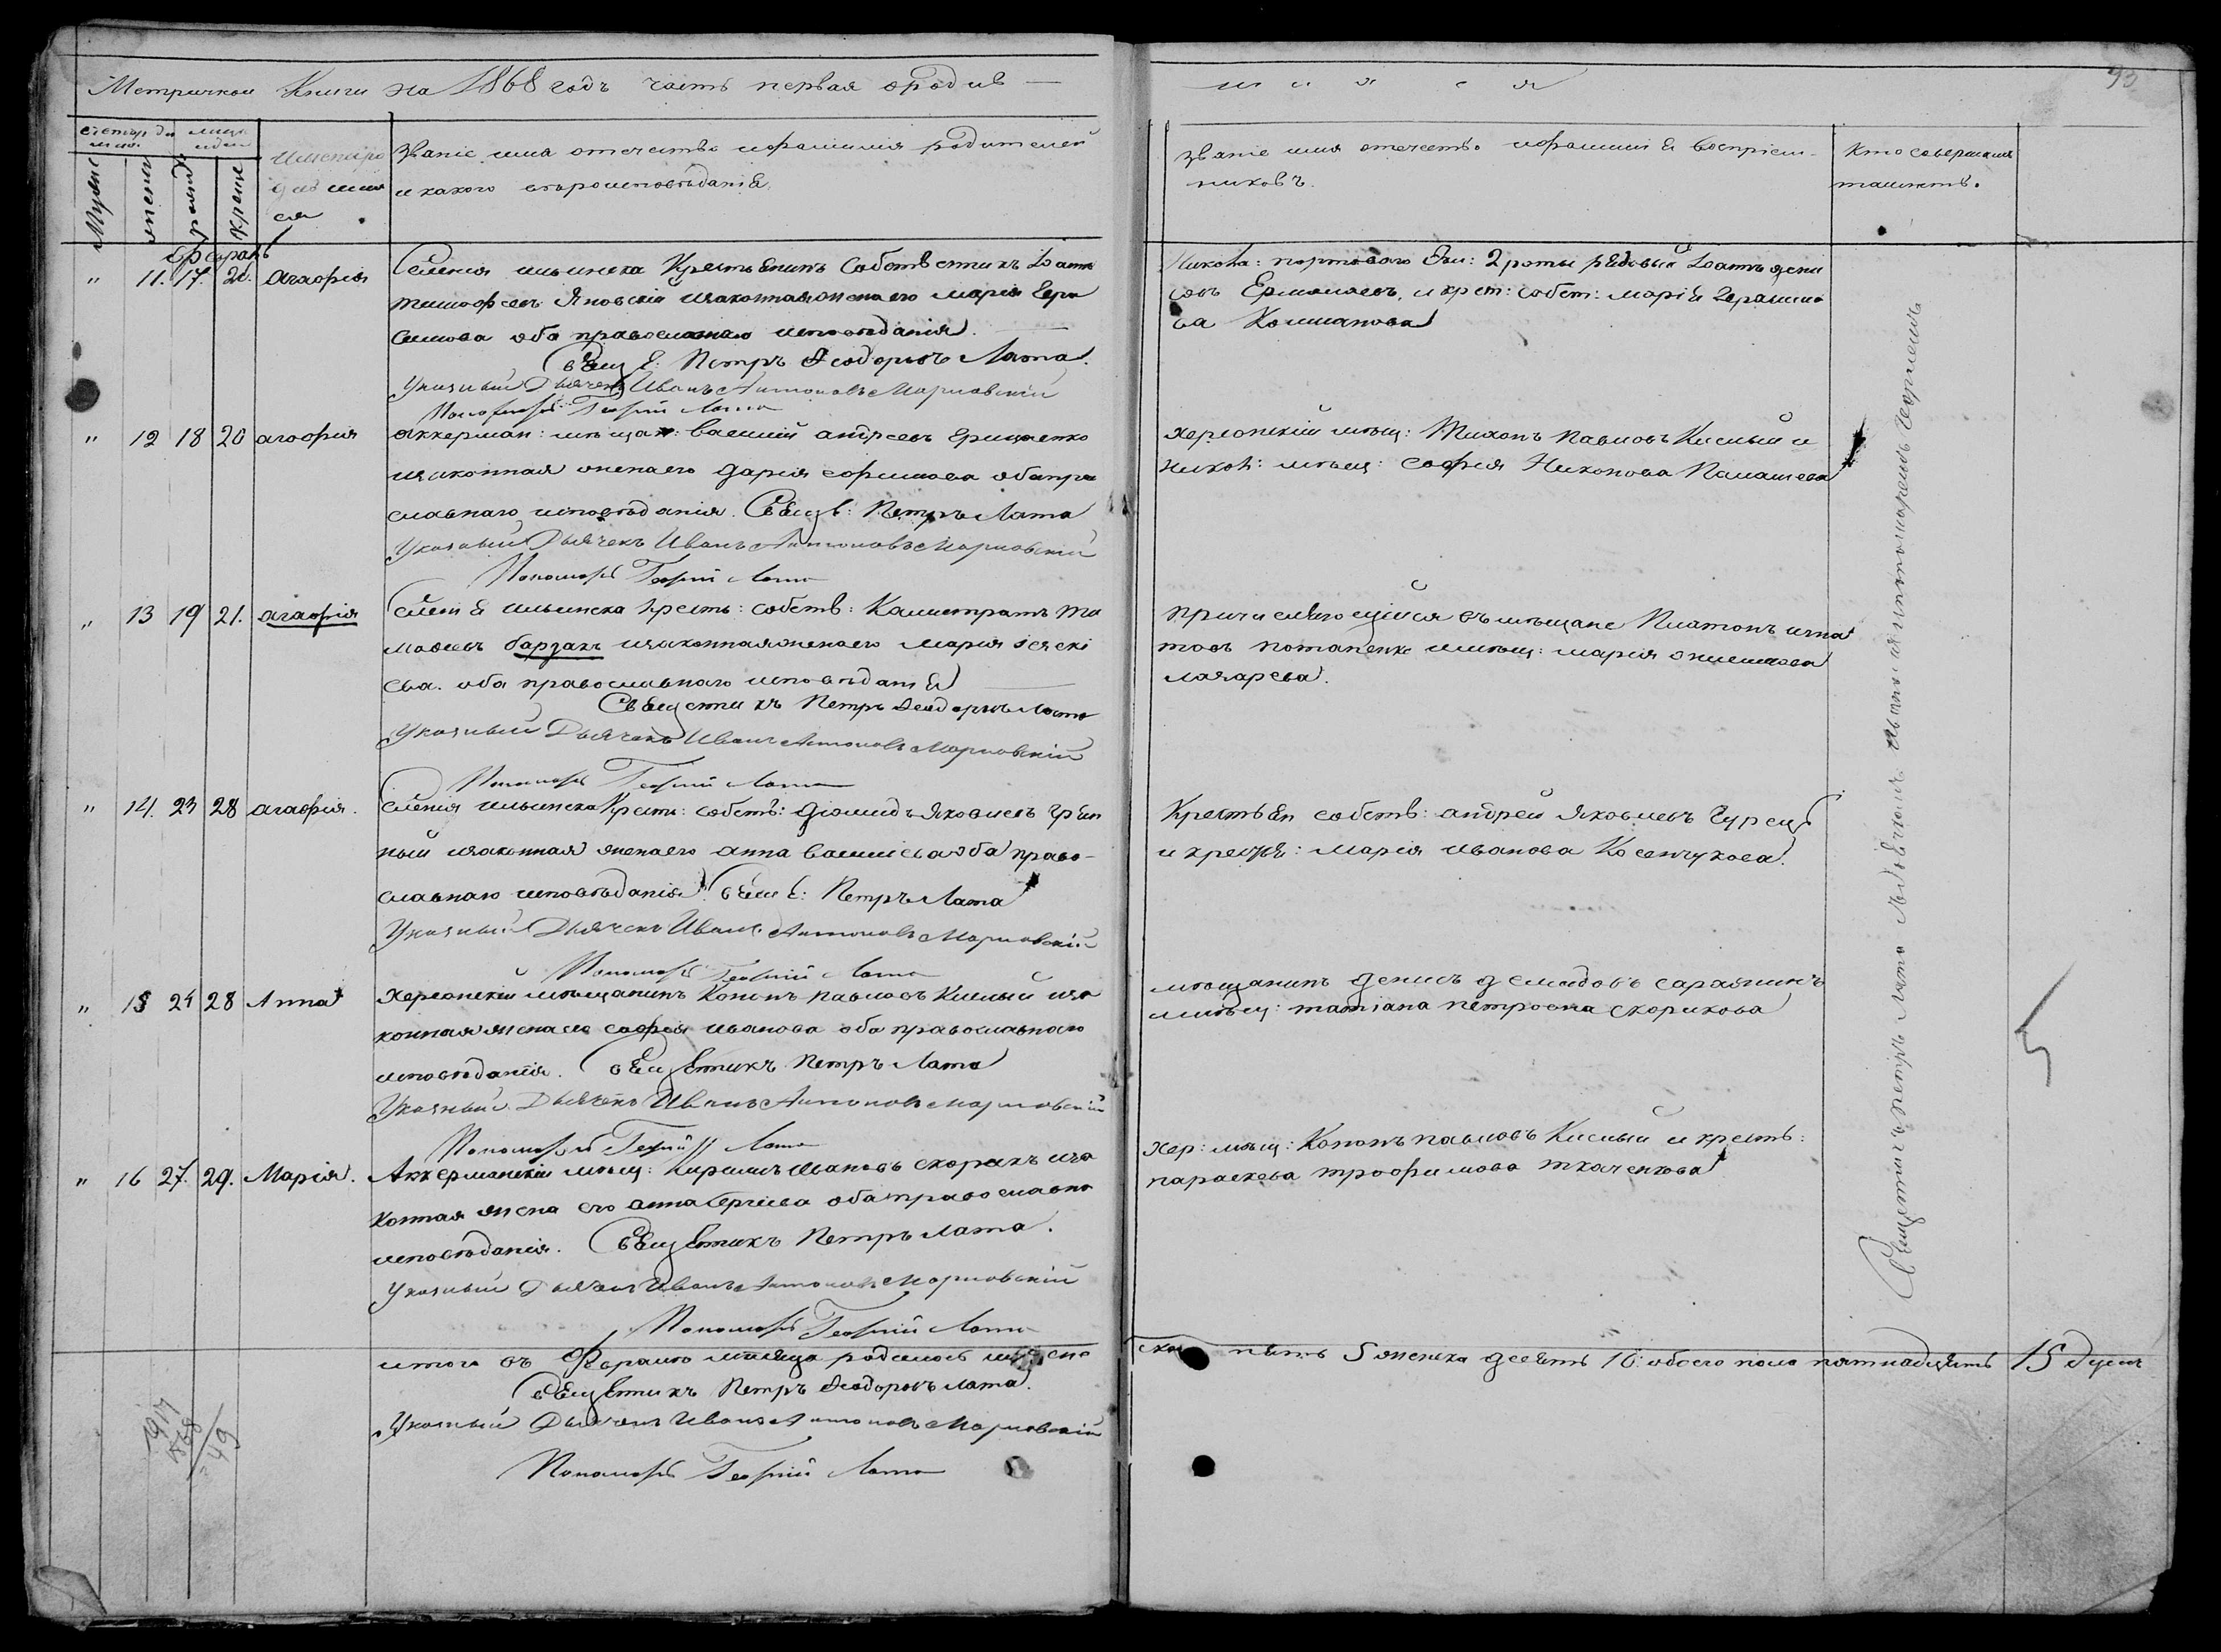 Метричкои Книги на 1868 годъ часть первая ородив—
шихся
93
Мужес
женск
рожд
креще
Званіе имя отечество ифамилія родителей
и какого вѣроисповѣданія
Званіе имя отечество ифамилия воспріем-
никовъ.
Кто совершалъ
таинств.
" 11. 17. 20. Агафія
Селенія ильинска Крестьянинъ Собственникъ Іоанъ
тимофеевъ Яновскій изаконная жена его марія Гера
симова оба православнаго исповѣданія.
Свящ: Петръ Феодоровъ Лата
Указный Дьячекъ Иванъ Антоновъ Марловскій
Пономарь Георгій Лата
Никола: портоваго Эки: 2 роты рядовый Іоанъ
совъ Ермолаевъ, и крест: собст: марія Герасимо
ва Колианова
" 12 18 20 агафия
аккерман: мѣщан: василий андреевъ Ерищенко
изаконная жена его дария ефимова оба пра
славнаго исповѣданія. Свящ: Петръ Лата
Указный Дьячекъ Иванъ Антоновъ Марловскій
Пономарь Георгій Лата
херсонскій мѣщ: Тихонъ павловъ Кислый и
никол: мѣщ: софія Никонова Палашева
" 13 19 21. агафія
Селенія ильинска крест: собств: Калистратъ ти
мофеевъ бардакъ изаконная жена его марія
ева. оба православнаго исповѣданія
Священникъ Петръ Феодоровъ Лата
Указный Дьячекъ Иванъ Антоновъ Марловскій
Пономарь Георгій Лата
Причисляющийся въ мѣщане Платонъ игна
товъ потапенко имѣщ: мария
лазарева.
" 14. 23 28 агафія.
Селенія ильинска Крест: собств: диомидъ Яковлевъ
ный изаконная жена его анна василіева оба право-
славнаго исповѣданія. Свящ: Петръ Лата
Указный Дьячекъ Иванъ Антоновъ Марловскій
Пономарь Георгій Лата
Крестьян собств: андрей Яковлевъ Гурец
и крестьян: марія иванова Косенчукова.
" 15 24 28 Анна
херсонскій мѣщанинъ Кононъ павловъ Кислый иза
конная жена его софія иванова оба православнаго
исповѣданія. Священникъ Петръ Лата
Указный Дьячекъ Иванъ Антоновъ Марловскій
Пономарь Георгій Лата
мѣщанинъ денисъ демидовъ
имѣщ: татіана петровна скорикова
" 16 27. 29. Марія.
Аккерманскій мѣщ: Кирилъ Ивановъ скорикъ иза
конная жена его анна Сергіева оба православн
исповѣданія. Священникъ Петръ Лата.
Указный Дьячекъ Иванъ Антоновъ Марловскій
Пономарь Георгій Лата
Хер: мѣщ: Кононъ павловъ Кислый и крестъ:
параскева трофимова ткаченкова
Священникъ петръ Лата
5
итого въ Февралю мѣсяца родилось
пять 5 женска десять 10: обоего пола пятнадцять 15 душъ
Священникъ Петръ Феодоровъ Лата.
Указный Дьячекъ Иванъ Антоновъ Марловскій
Пономарь Георгій Лата
1917
868
49